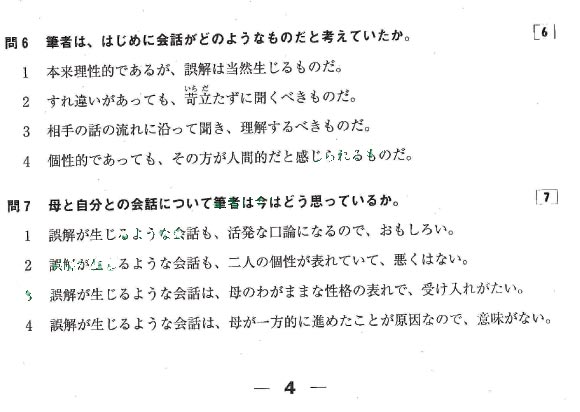 問6 筆者は、はじめに会話がどのようなものだと考えていたか。 6
1 本来理性的であるが、誤解は当然生じるものだ。
2 すれ違いがあっても、苛立たずに聞くべきものだ。
いらだ
3 相手の話の流れに沿って聞き、理解するべきものだ。
4 個性的であっても、その方が人間的だと感じられるものだ。
問7 母と自分との会話について筆者は今はどう思っているか。 7
1 誤解が生じるような会話も、活発な口論になるので、おもしろい。
2 誤解が生じるような会話も、二人の個性が表れていて、悪くはない。
3 誤解が生じるような会話は、母のわがままな性格の表れで、受け入れがたい。
4 誤解が生じるような会話は、母が一方的に進めたことが原因なので、意味がない。
— 4 —